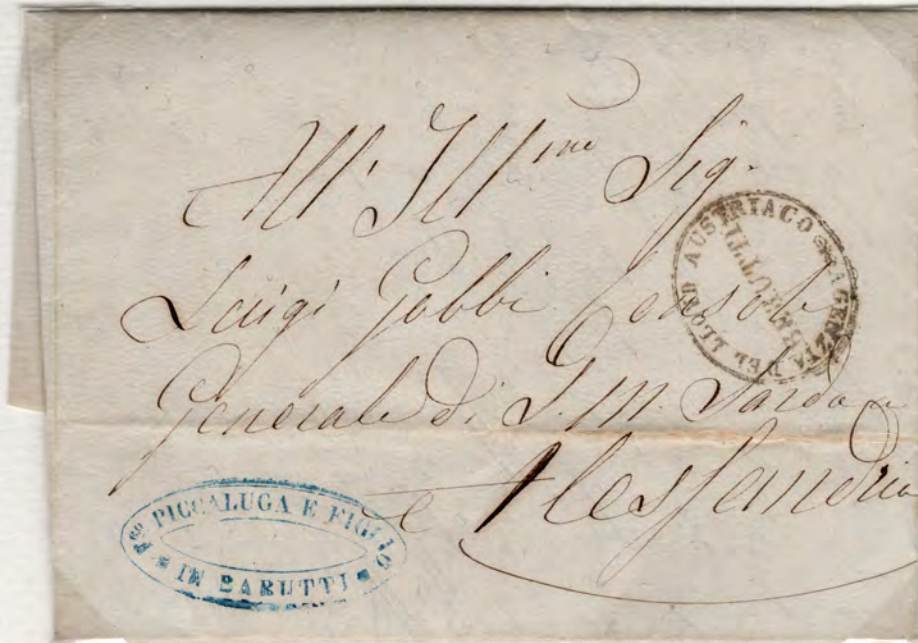 All' Ill.mo Sig.
Luigi Gobbi Console
Generale di S. M. Sarda
Alessandria
AGENZIA DEL LLOYD AUSTRIACO
BERUTTI
F.co PICCALUGA E FIGLIO
IN BARUTTI